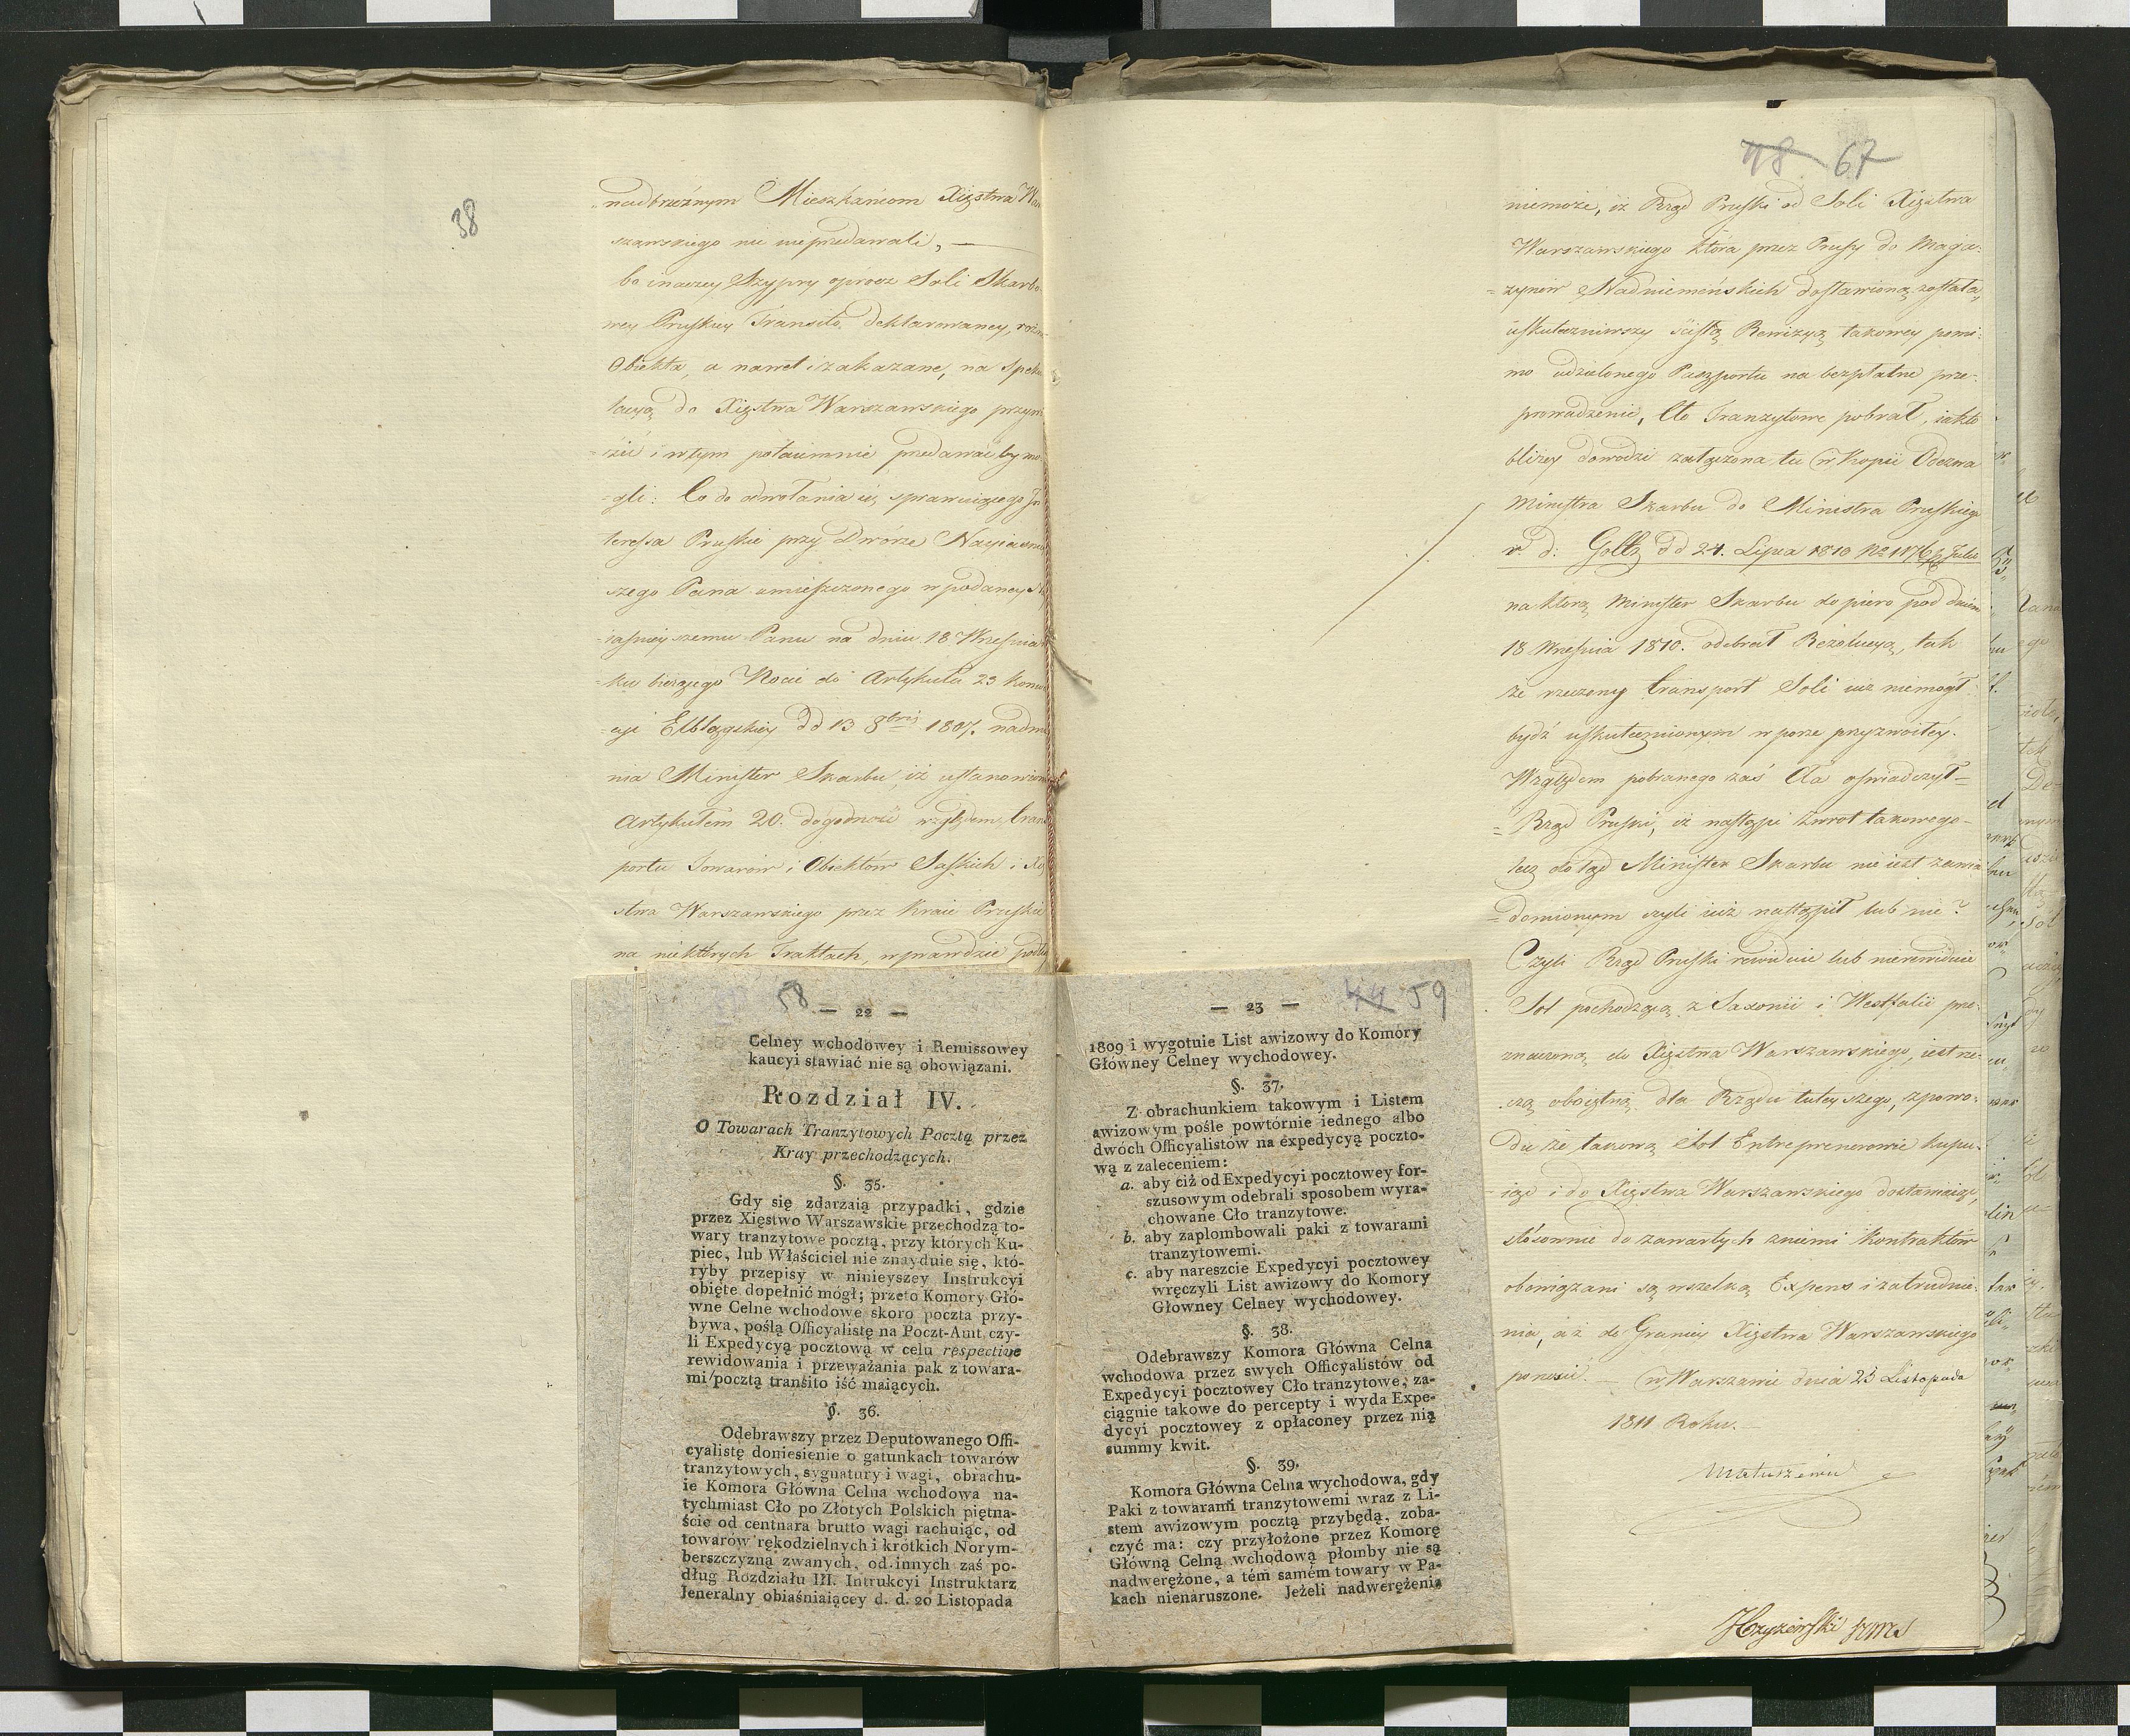 38
nadbrzeźnym Mieszkańcom Xięstwa War
szawskiego nie nieprzedawali, —
bo inaczey Szypry oprocz Soli Skarbo
wey Pruskiey Transito deklarowaney, rożn
Obiekta, a nawet i zakazane, na Speku
lacyą do Xięstwa Warszawskiego przyw
ieźć i w tym potaiemnie przedawać by mo
gli: Co do odwołania się, sprawuiącego In
teressa Pruskie przy Dworze Nayiaśniey
szego Pana umieszczonego w podaney N
iaśnieyszemu Panu na dniu 18 Września
ku bieżącego Nocie do Artykułu 23 Konw
cyi Elblągskiey dd 13 8bris 1807. nadmi
nia Minister Skarbu, iż ustanowiona
Artykułem 20. dogodność względem trans
portu Towarów i Obiektów Saskich i Xię
stwa Warszawskiego przez Kraie Pruskie
na niektórych Traktach, wprawdzie podług
58
— 22 —
Celney wchodowey i Remissowey
kaucyi stawiać nie są obowiązani.
Rozdział IV.
O Towarach Tranzytowych Pocztą przez
Kray przechodzących.
§. 35.
Gdy się zdarzaią przypadki, gdzie
przez Xięstwo Warszawskie przechodzą to-
wary tranzytowe pocztą, przy których Ku-
piec, lub Właściciel nie znayduie się, któ-
ryby przepisy w ninieyszey Instrukcyi
obięte dopełnić mógł; przeto Komory Głó-
wne Celne wchodowe skoro poczta przy-
bywa, poślą Officyalistę na Poczt-Amt czy-
li Expedycyą pocztową w celu respective
rewidowania i przeważania pak z towara-
mi pocztą transito iść maiących.
§. 36.
Odebrawszy przez Deputowanego Offi-
cyalistę doniesienie o gatunkach towarów
tranzytowych, sygnatury i wagi, obrachu-
ie Komora Główna Celna wchodowa na-
tychmiast Cło po Złotych Polskich piętna-
ście od centnara brutto wagi rachuiąc, od
towarów rękodzielnych i krótkich Norym-
berszczyzną zwanych, od innych zaś po-
dług Rozdziału III. Intrukcyi Instruktarz
Jeneralny obiaśniaiącey d. d. 20 Listopada
— 23 — 44 59
1809 i wygotuie List awizowy do Komory
Główney Celney wychodowey.
§. 37.
Z obrachunkiem takowym i Listem
awizowym pośle powtórnie iednego albo
dwóch Officyalistów na expedycyą poczto-
wą z zaleceniem:
a. aby ciż od Expedycyi pocztowey for-
szusowym odebrali sposobem wyra-
chowane Cło tranzytowe.
b. aby zaplombowali paki z towarami
tranzytowemi.
c. aby nareszcie Expedycyi pocztowey
wręczyli List awizowy do Komory
Głowney Celney wychodowey.
§. 38.
Odebrawszy Komora Główna Celna
wchodowa przez swych Officyalistów od
Expedycyi pocztowey Cło tranzytowe, za-
ciągnie takowe do percepty i wyda Expe-
dycyi pocztowey z opłaconey przez nią
summy kwit.
§. 39.
Komora Główna Celna wychodowa, gdy
Paki z towarami tranzytowemi wraz z Li-
stem awizowym pocztą przybędą, zoba-
czyć ma: czy przyłożone przez Komorę
Główną Celną wchodową płomby nie są
nadwerężone, a tém samém towary w Pa-
kach nienaruszone. Jeżeli nadwerężenia
48 67
niemoże, iż Rząd Pruski od Soli Xięstwa
Warszawskiego która przez Prusy do Maga-
zynów Nadniemeńskich dostawioną została,
uskuteczniwszy ścisłą Rewizyą takowey pomi-
mo udzielonego Paszportu na bezpłatne prze-
prowadzenie, Cło Tranzytowe pobrał, iak to
bliżey dowodzi załączona tu w Kopii Odezwa
Ministra Skarbu do Ministra Pruskiego
v d: Goltz dd 24. Lipca 1810 No 1176
na którą Minister Skarbu dopiero pod dniem
18 Września 1810. odebrał Rezolucyą, tak
że rzeczony transport Soli iuż niemógł
bydź uskutecznionym w porze przyzwoitey.
Względem pobranego zaś Cła oświadczył
Rząd Pruski, iż nastąpi zwrot takowego
lecz dotąd Minister Skarbu nie iest zawia-
domionym czyli iuż nastąpił lub nie?
Czyli Rząd Pruski rewiduie lub nierewiduie
Sol pochodzącą z Saxonii i Westfalii prze-
znaczoną do Xięstwa Warszawskiego, iest rze-
czą oboiętną dla Rządu tuteyszego, z powo-
du że takową Sol Entreprenerowie kupu-
iąc i do Xięstwa Warszawskiego dostawiaiąc,
stosownie do zawartych z niemi Kontraktów
obowiązani są wszelką Expens i zatrudnie-
nia, aż do Granicy Xięstwa Warszawskiego
ponosić. — w Warszawie dnia 23 Listopada
1811 Roku.
Matuszewic